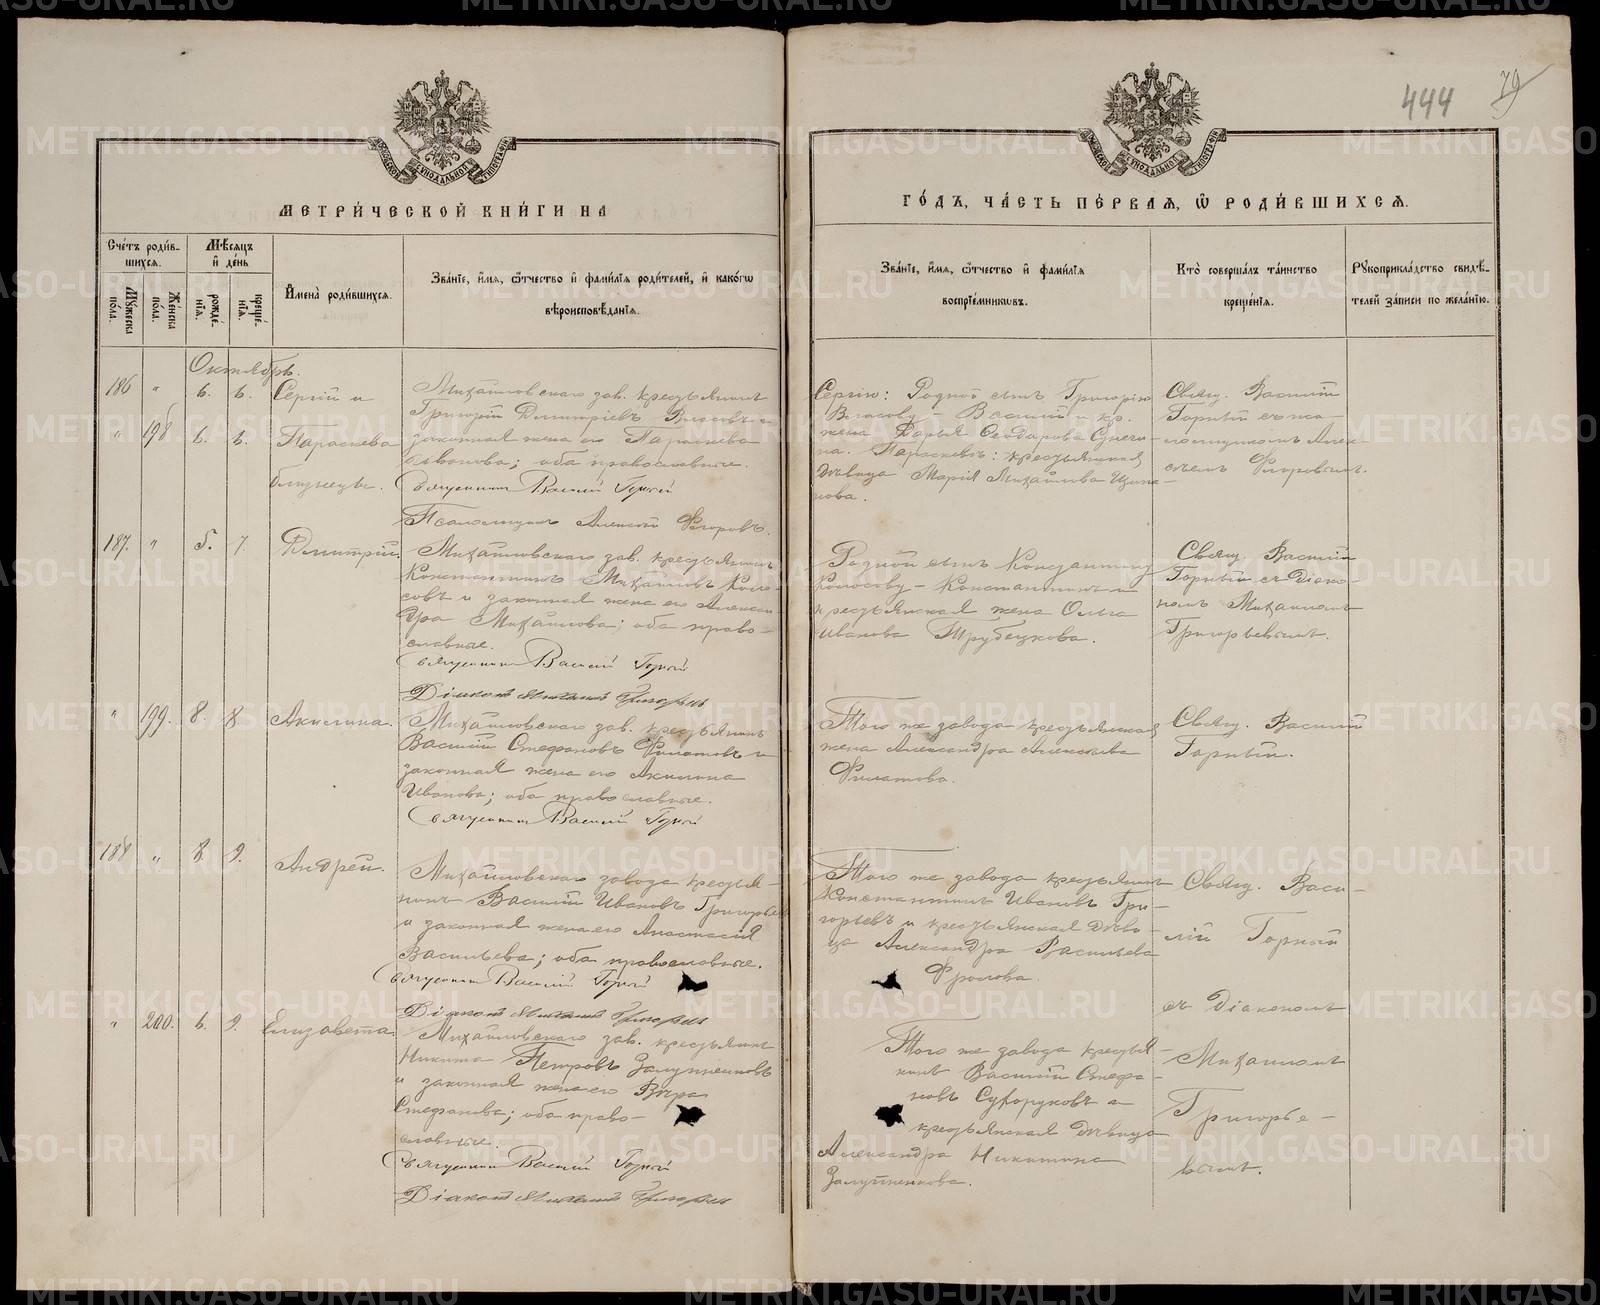 444
79
МОСКОВСКОЙ СѴНОДАЛЬНОЙ ТИПОГРАФІИ
МЕТРИ́ЧЕСКОЙ КНИ́ГИ НА
Сче́тъ роди́в-
шихсѧ.
Мꙋ́жеска
по́ла.
Же́нска
по́ла.
Мѣ́сѧцъ
и҆ де́нь
рожде́-
нїѧ.
креще́-
нїѧ.
И҆мена̀ роди́вшихсѧ.
Зва́нїе, и҆́мѧ, ѻ҆́тчество и҆ фами́лїѧ роди́телей, и҆ како́гѡ
вѣроисповѣ́данїѧ.
Октябрь.
186 " 6. 6. Сергій и
" 198 6. 6. Параскева
близнецы.
Михайловскаго зав. крестьянинъ
Григорій Димитріевъ Власовъ и
законная жена его Параскева
Иванова; оба православные.
Священникъ Василій Горный
Псаломщикъ Алексѣй Флоровъ.
187. " 5. 7. Димитрій.
Михайловскаго зав. крестьянинъ
Константинъ Михайловъ Коло-
совъ и законная жена его Алексан
дра Михайлова; оба право-
славные.
Священникъ Василій Горный
Діаконъ Михаилъ Григорьев
" 199. 8. 8 Акилина.
Михайловскаго зав. крестьянинъ
Василій Стефановъ Филатовъ и
законная жена его Акилина
Иванова; оба православные.
Священникъ Василій Горный
188 " 8. 9. Андрей.
Михайловскаго завода крестья-
нинъ Василій Ивановъ Григорьевъ
и законная жена его Анастасія
Васильева; оба православные.
Священникъ Василій Горный
Діаконъ Михаилъ Григорьев
" 200. 6. 9. Елизавета.
Михайловскаго зав. крестьянинъ
Никита Петровъ Залупненковъ
и законная жена его Вѣра
Стефанова; оба право-
славные.
Священникъ Василій Горный
Діаконъ Михаилъ Григорьев
МОСКОВСКОЙ СѴНОДАЛЬНОЙ ТИПОГРАФІИ
ГО́ДЪ, ЧА́СТЬ ПЕ́РВАѦ, Ѡ҆ РОДИ́ВШИХСѦ.
Зва́нїе, и҆́мѧ, ѻ҆́тчество и҆ фами́лїѧ
воспрїе́мникѡвъ.
Кто̀ соверша́лъ та́инство
креще́нїѧ.
Рꙋкоприкла́дство свидѣ́-
телей за́писи по жела́нїю.
Сергію: Родной сынъ Григорію
Власову – Василій и кр.
жена Дарья Ѳеодорова Снеги-
на. Параскевѣ: крестьянская
дѣвица Марія Михайлова Щипа-
нова.
Свящ. Василій
Горный съ пса-
ломщикомъ Алек-
сѣемъ Флоровымъ.
Родной сынъ Константину
Колосову – Константинъ и
крестьянская жена Ольга
Иванова Трубецкова.
Свящ. Василій
Горный съ Діако-
номъ Михаиломъ
Григорьевымъ.
Того же завода крестьянская
жена Александра Алексѣева
Филатова.
Свящ. Василій
Горный.
Того же завода крестьянинъ
Константинъ Ивановъ Гри-
горьевъ и крестьянская дѣви-
ца Александра Васильева
Фролова.
Свящ. Васи-
лій Горный
съ Діакономъ
Михаиломъ
Григорье-
вымъ.
Того же завода крестья-
нинъ Василій Стефа-
новъ Сухоруковъ и
крестьянская дѣвица
Александра Никитина
Залупненкова.
METRIKI.GASO-URAL.RU